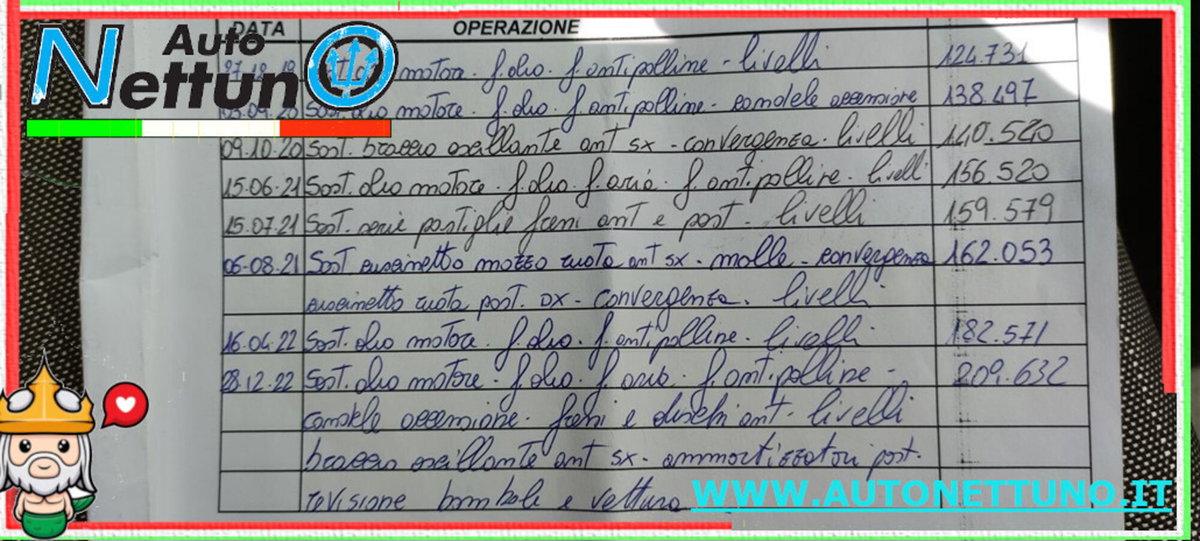 DATA OPERAZIONE
Auto
Nettuno
motore. f. olio. f. antipolline - livelli 124.731
03.09.20 Sost. olio motore. f. olio. f. antipolline - candele accensione 138.497
09.10.20 Sost. braccio oscillante ant sx - convergenza. livelli 140.520
15.06.21 Sost. olio motore. f. olio f. aria. f. antipolline. livelli 156.520
15.07.21 Sost. serie pastiglie freni ant e post. livelli 159.579
06.08.21 Sost cuscinetto mozzo ruota ant sx - molle - convergenza 162.053
cuscinetto ruota post. DX - convergenza. livelli
16.04.22 Sost. olio motore. f. olio. f. antipolline. livelli 182.571
28.12.22 Sost. olio motore. f. olio. f. aria. f. antipolline - 209.632
candele accensione. freni e dischi ant. livelli
braccio oscillante ant sx - ammortizzatori post.
revisione bombole e vettura
WWW.AUTONETTUNO.IT